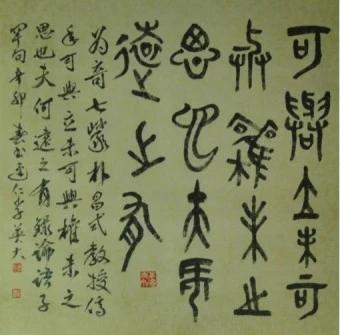 可與立未可
與權未之
思也夫何
遠之有
為奇七蒙朴昌式教授
可與立未可與權未之
思也夫何遠之有錄論語子
罕句辛卯 李英夫